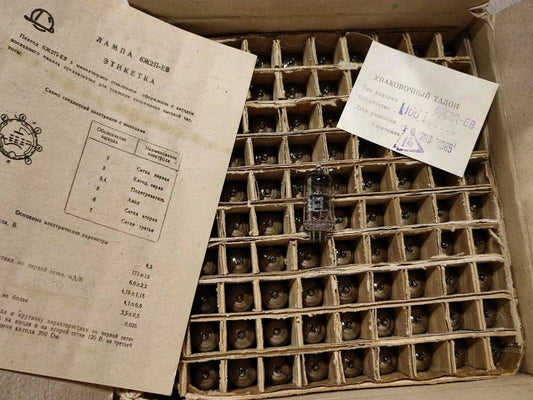 ЛАМПА 6Ж2П-ЕВ
ЭТИКЕТКА
Пентод 6Ж2П-ЕВ в миниатюрном оформлении с катодом
косвенного накала предназначен для усиления напряжения высокой час-
тоты.
Схема соединений электродов с выводами
Обозначение вывода
Наименование электрода
1
Сетка первая
2
Катод, экран
3,4
Подогреватель
5
Анод
6
Сетка вторая
7
Сетка третья
Основные электрические параметры
6,3
171±13
6,0±2,2
4,15±1,15
4,1±0,6
2,5±0,5
0,035
не более
крутизне характеристики по первой сетке
на второй сетке 120 В, на третьей
катода 200 Ом.
УПАКОВОЧНЫЙ ТАЛОН
Тип изделия 6Ж2П-ЕВ
Количество 100
Дата упаковки 1989
Упаковщик